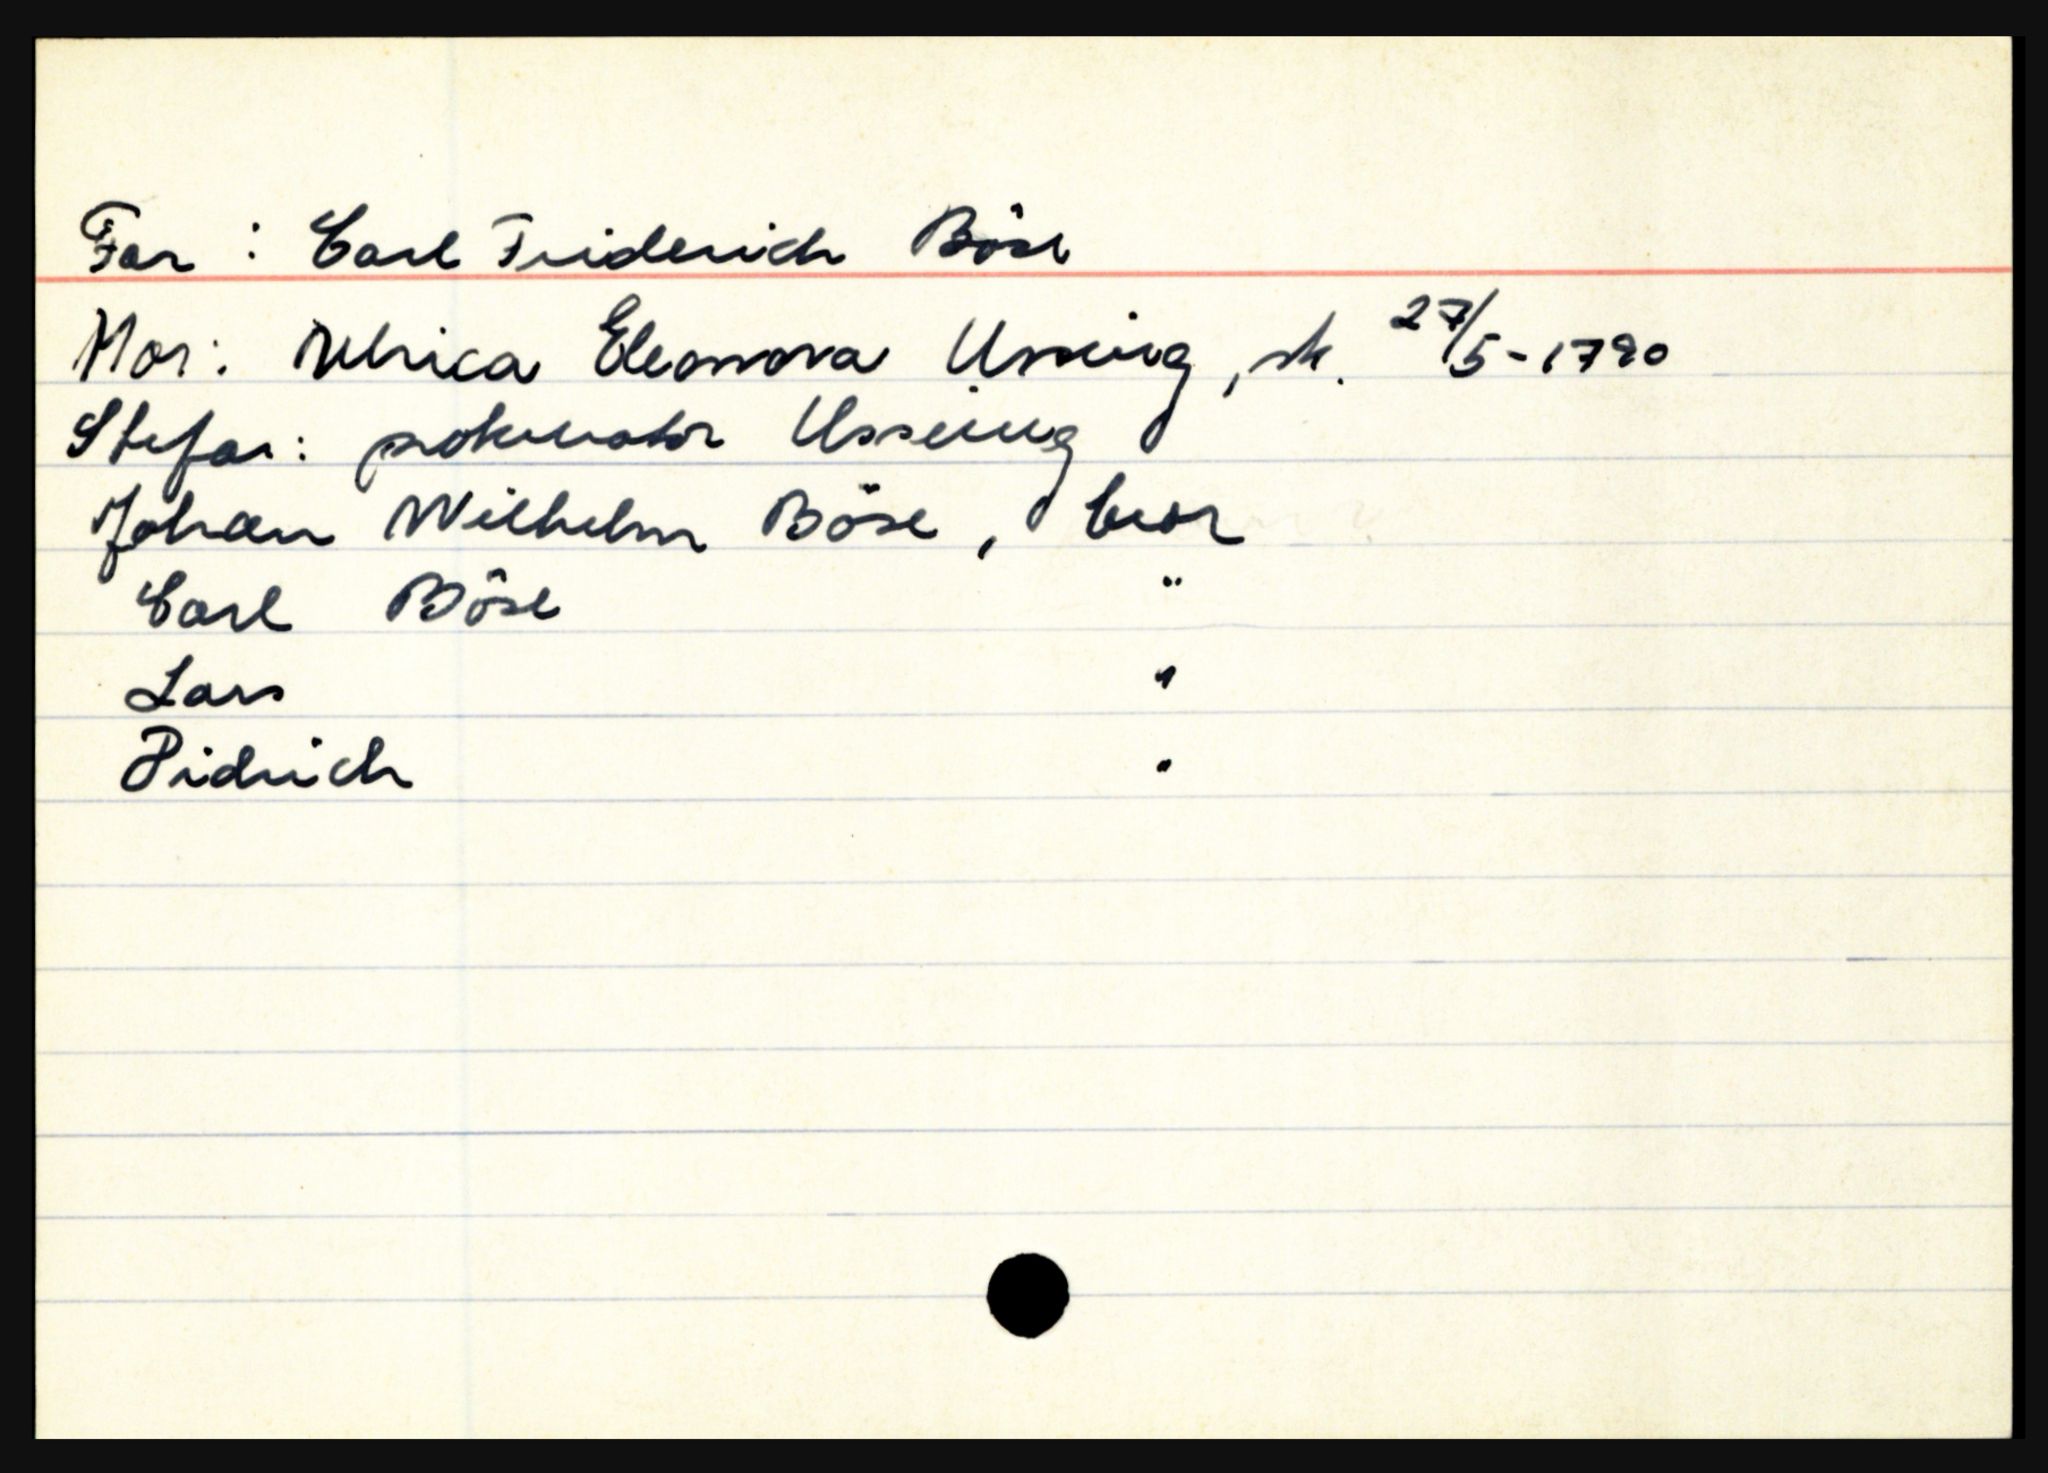 Far : Carl Friderich Böse
Mor: Ulrica Eleonora Ussing, sk. 27/5-1790
Stefar: prokurator Ussing
Johan Wilhelm Böse, bror
Carl Böse "
Lars "
Didrich "